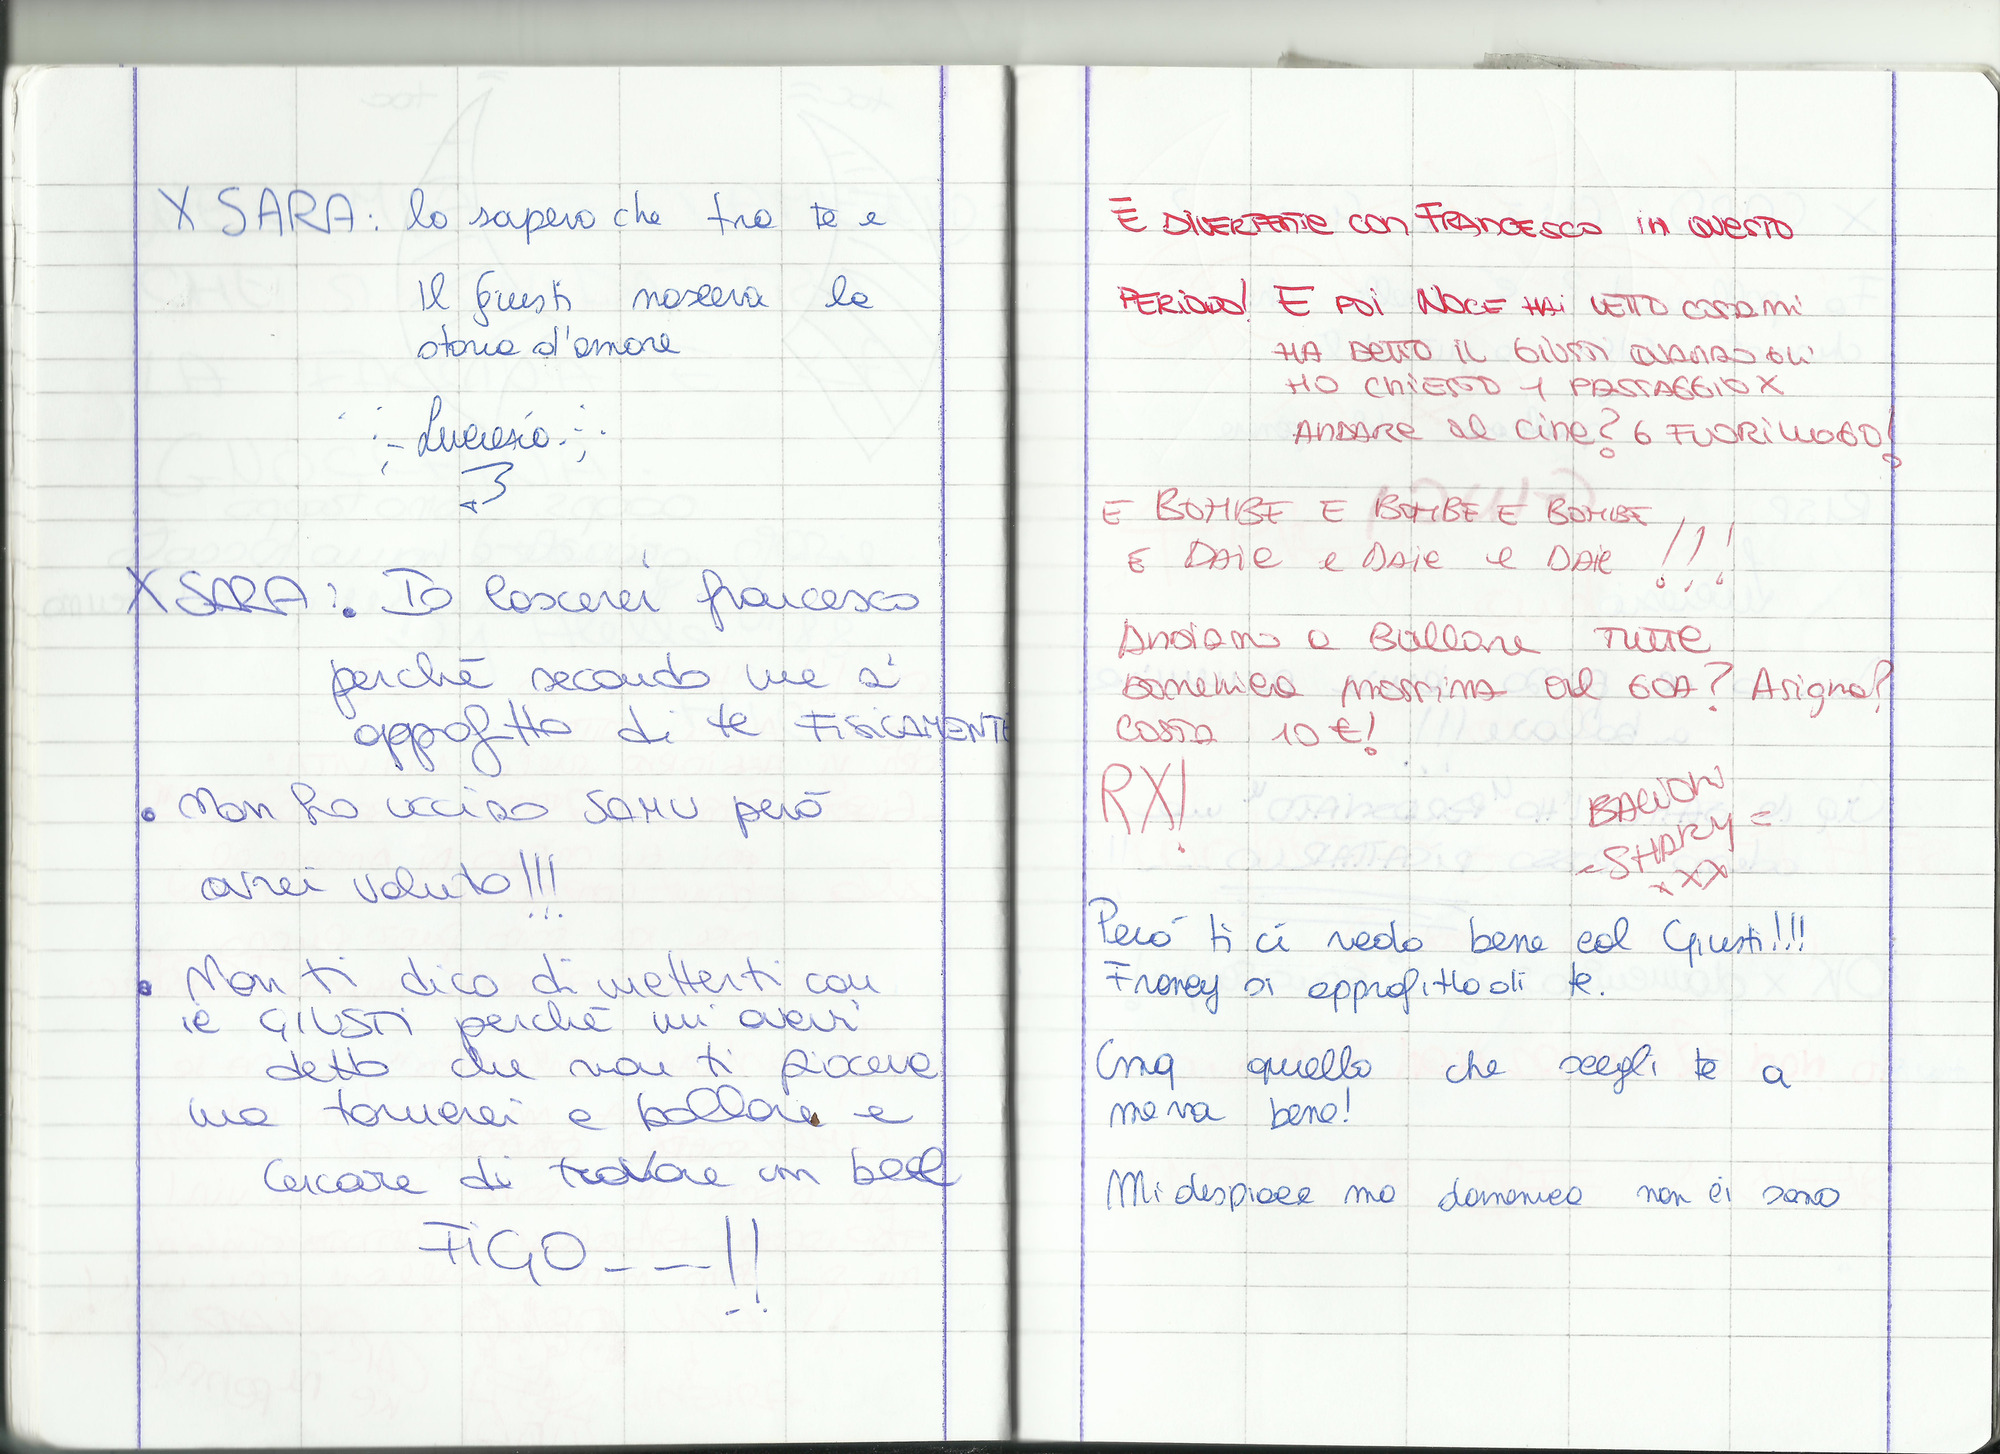 X SARA: lo sapevo che tra te e
Il Giusti nasceva la
storia d'amore
Lucrezia
X SARA: • Io lascerei francesco
perchè secondo me si
approfitta di te FISICAMENTE
• Non ho ucciso SAMU però
avrei voluto!!!
• Non ti dico di metterti con
il GIUSTI perchè mi avevi
detto che non ti piaceva
ma tornerei a ballare e
cercare di trovare un bel
FIGO _ _ _!!
È DIVERTENTE CON FRANCESCO in QUESTO
PERIODO! E POI NOCE HAI LETTO COSA MI
HA DETTO IL GIUSTI QUANDO GLI
HO CHIESTO 1 PASSAGGIO X
ANDARE al cine? 6 FUORILUOGO!
E BOMBE E BOMBE E BOMBE
E DAIE e DAIE e DAIE !!!
Andiamo a Ballare TUTTE
DOMENICA prossima al GOA? Asigna?
COSTA 10 €!
RX!
=SHARY=
xxx
Però ti ci vedo bene col Giusti!!!
Francy si approfitta di te.
Cmq quello che scegli te a
me va bene!
Mi despiace ma domenica non ci sono